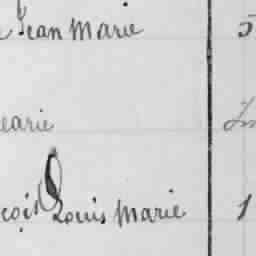 Jean Marie 5
earie
çois Louis Marie 1